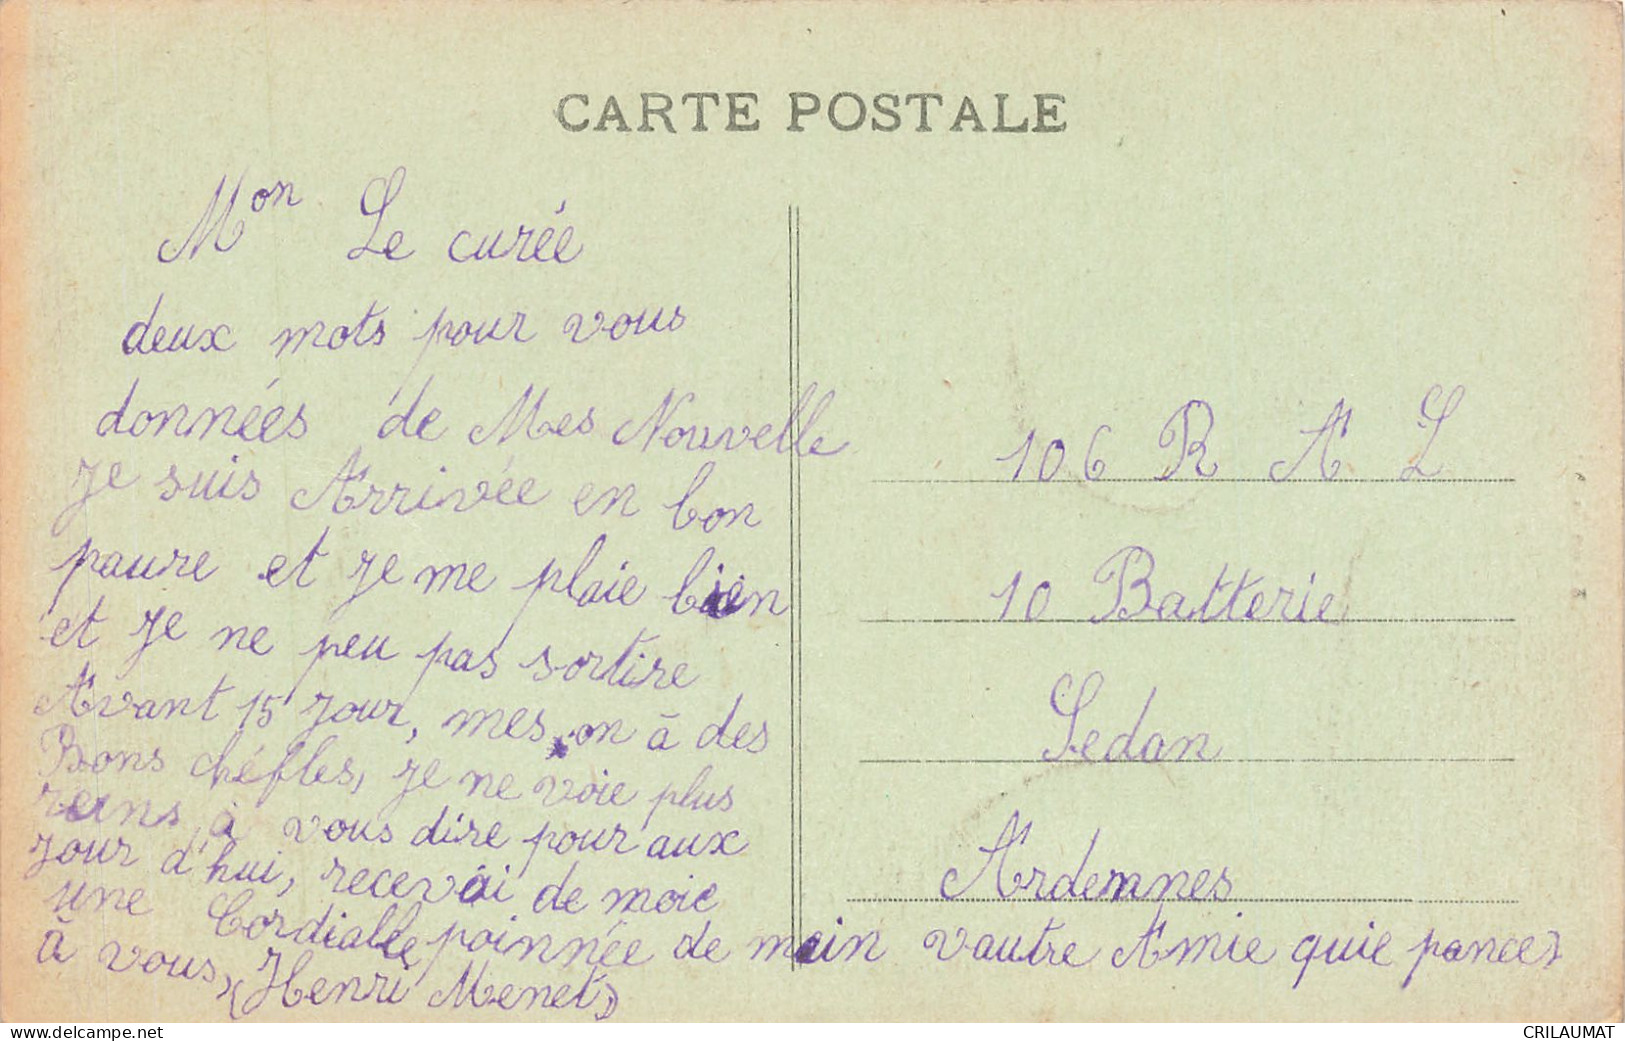 CARTE POSTALE
Mon Le curée
deux mots pour vous
données de Mes Nouvelle
Je suis Arrivée en bon
paure et Je me plaie bien
et Je ne peu pas sortire
Avant 15 Jour, mes on à des
Bons chéfles, Je ne voie plus
reins à vous dire pour aux
Jour d'hui, recevai de moie
une Cordialle poinnée de main vautre Amie quie pance
à vous, (Henri Menet)
106 R A L
10 Batterie
Sedan
Ardennes
www.delcampe.net
CRILAUMAT